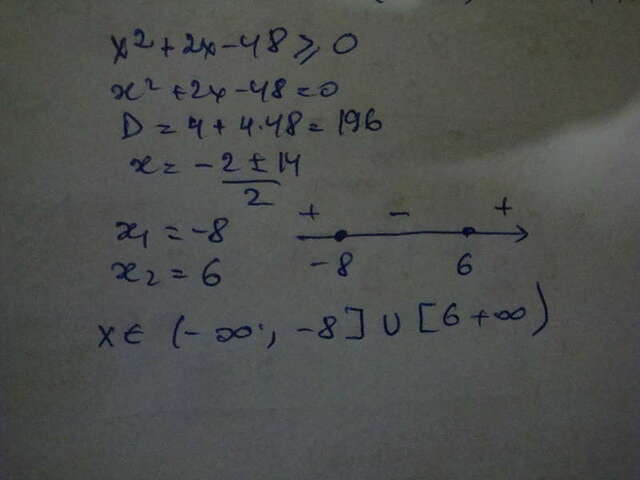 x² + 2x - 48 ⩾ 0
x² + 2x - 48 = 0
D = 4 + 4·48 = 196
x = -2 ± 14 / 2
x₁ = -8
x₂ = 6
+ - +
-8 6
x ∈ (-∞; -8] ∪ [6 +∞)